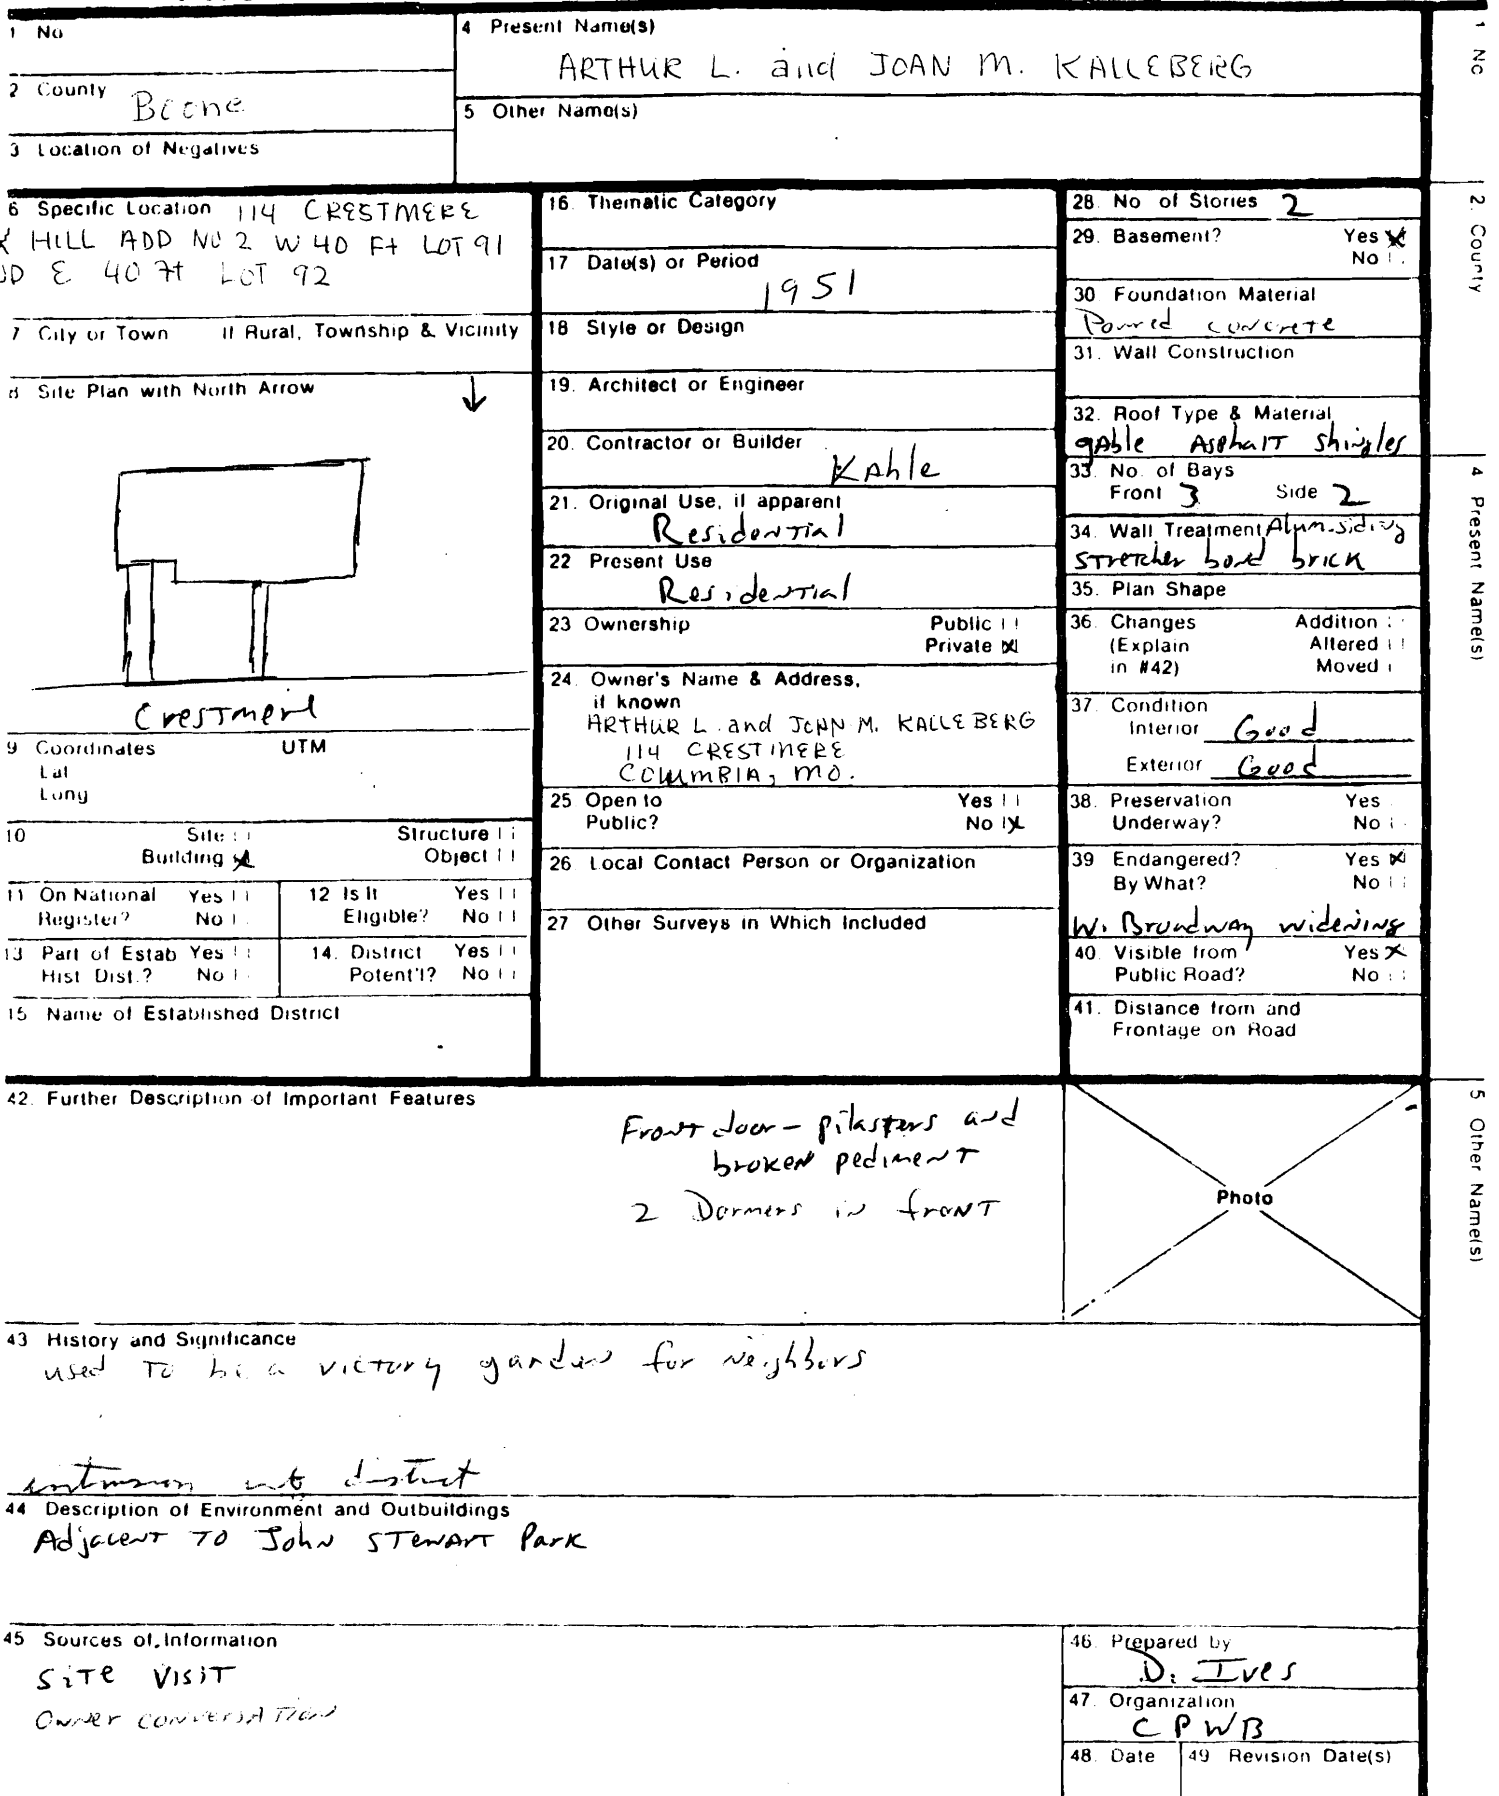 1 No
4 Present Name(s)
ARTHUR L. and JOAN M. KALLEBERG
2 County
Boone
5 Other Name(s)
3 Location of Negatives
6 Specific Location 114 CRESTMERE
HILL ADD NO 2 W 40 Ft LOT 91
E 40 Ft LOT 92
7 City or Town If Rural, Township & Vicinity
8 Site Plan with North Arrow
Crestmere
9 Coordinates UTM
Lat
Long
10 Site Structure
Building Object
11 On National Register? Yes No
12 Is It Eligible? Yes No
13 Part of Estab Hist Dist.? Yes No
14. District Potent'l? Yes No
15 Name of Established District
16. Thematic Category
17 Date(s) or Period
1951
18 Style or Design
19. Architect or Engineer
20. Contractor or Builder
Kahle
21. Original Use, if apparent
Residential
22 Present Use
Residential
23 Ownership Public
Private
24. Owner's Name & Address,
if known
ARTHUR L. and JOAN M. KALLEBERG
114 CRESTMERE
COLUMBIA, MO.
25 Open to Yes
Public? No
26. Local Contact Person or Organization
27 Other Surveys in Which Included
28. No of Stories 2
29. Basement? Yes
No
30 Foundation Material
Poured concrete
31. Wall Construction
32. Roof Type & Material
gable Asphalt shingles
33. No. of Bays
Front 3 Side 2
34. Wall Treatment Alum. siding
stretcher bond brick
35. Plan Shape
36. Changes Addition
(Explain Altered
in #42) Moved
37. Condition
Interior Good
Exterior Good
38. Preservation Yes
Underway? No
39 Endangered? Yes
By What? No
W. Broadway widening
40. Visible from Yes
Public Road? No
41. Distance from and
Frontage on Road
42. Further Description of Important Features
Front door - pilasters and
broken pediment
2 Dormers in front
Photo
43 History and Significance
used to be a victory garden for neighbors
intrusion into district
44 Description of Environment and Outbuildings
Adjacent to John Stewart Park
45 Sources of Information
Site Visit
Owner conversation
46. Prepared by
D. Ives
47. Organization
CPWB
48. Date 49 Revision Date(s)
1 No
2. County
4 Present Name(s)
5 Other Name(s)